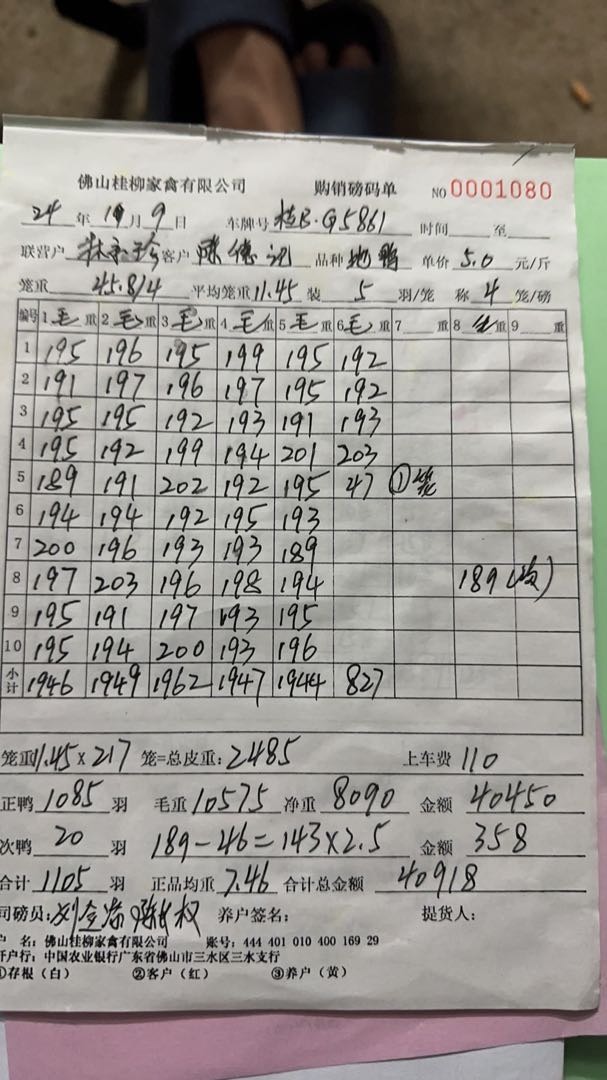 佛山桂柳家禽有限公司 购销磅码单 NO 0001080
24 年 10 月 9 日 车牌号 桂B·G5861 时间 至
联营户 林 珍 客户 陈德记 品种 地鸭 单价 5.0 元/斤
笼重 45.8/4 平均笼重 11.45 装 5 羽/笼 称 4 笼/磅
编号 1 毛 重 2 毛 重 3 毛 重 4 毛 重 5 毛 重 6 毛 重 7 重 8 重 9 重
1 195 196 195 199 195 192
2 191 197 196 197 195 192
3 195 195 192 193 191 193
4 195 192 199 194 201 203
5 189 191 202 192 195 47 ①笼
6 194 194 192 195 193
7 200 196 193 193 189
8 197 203 196 198 194 189(次)
9 195 191 197 193 195
10 195 194 200 193 196
小计 1946 1949 1962 1947 1944 827
笼重 11.45 × 217 笼=总皮重: 2485 上车费 110
正鸭 1085 羽 毛重 10575 净重 8090 金额 40450
次鸭 20 羽 189-46=143×2.5 金额 358
合计 1105 羽 正品均重 7.46 合计总金额 40918
司磅员: 权 养户签名: 提货人:
户 名: 佛山桂柳家禽有限公司 账号: 444 401 010 400 169 29
开户行: 中国农业银行广东省佛山市三水区三水支行
①存根(白) ②客户(红) ③养户(黄)